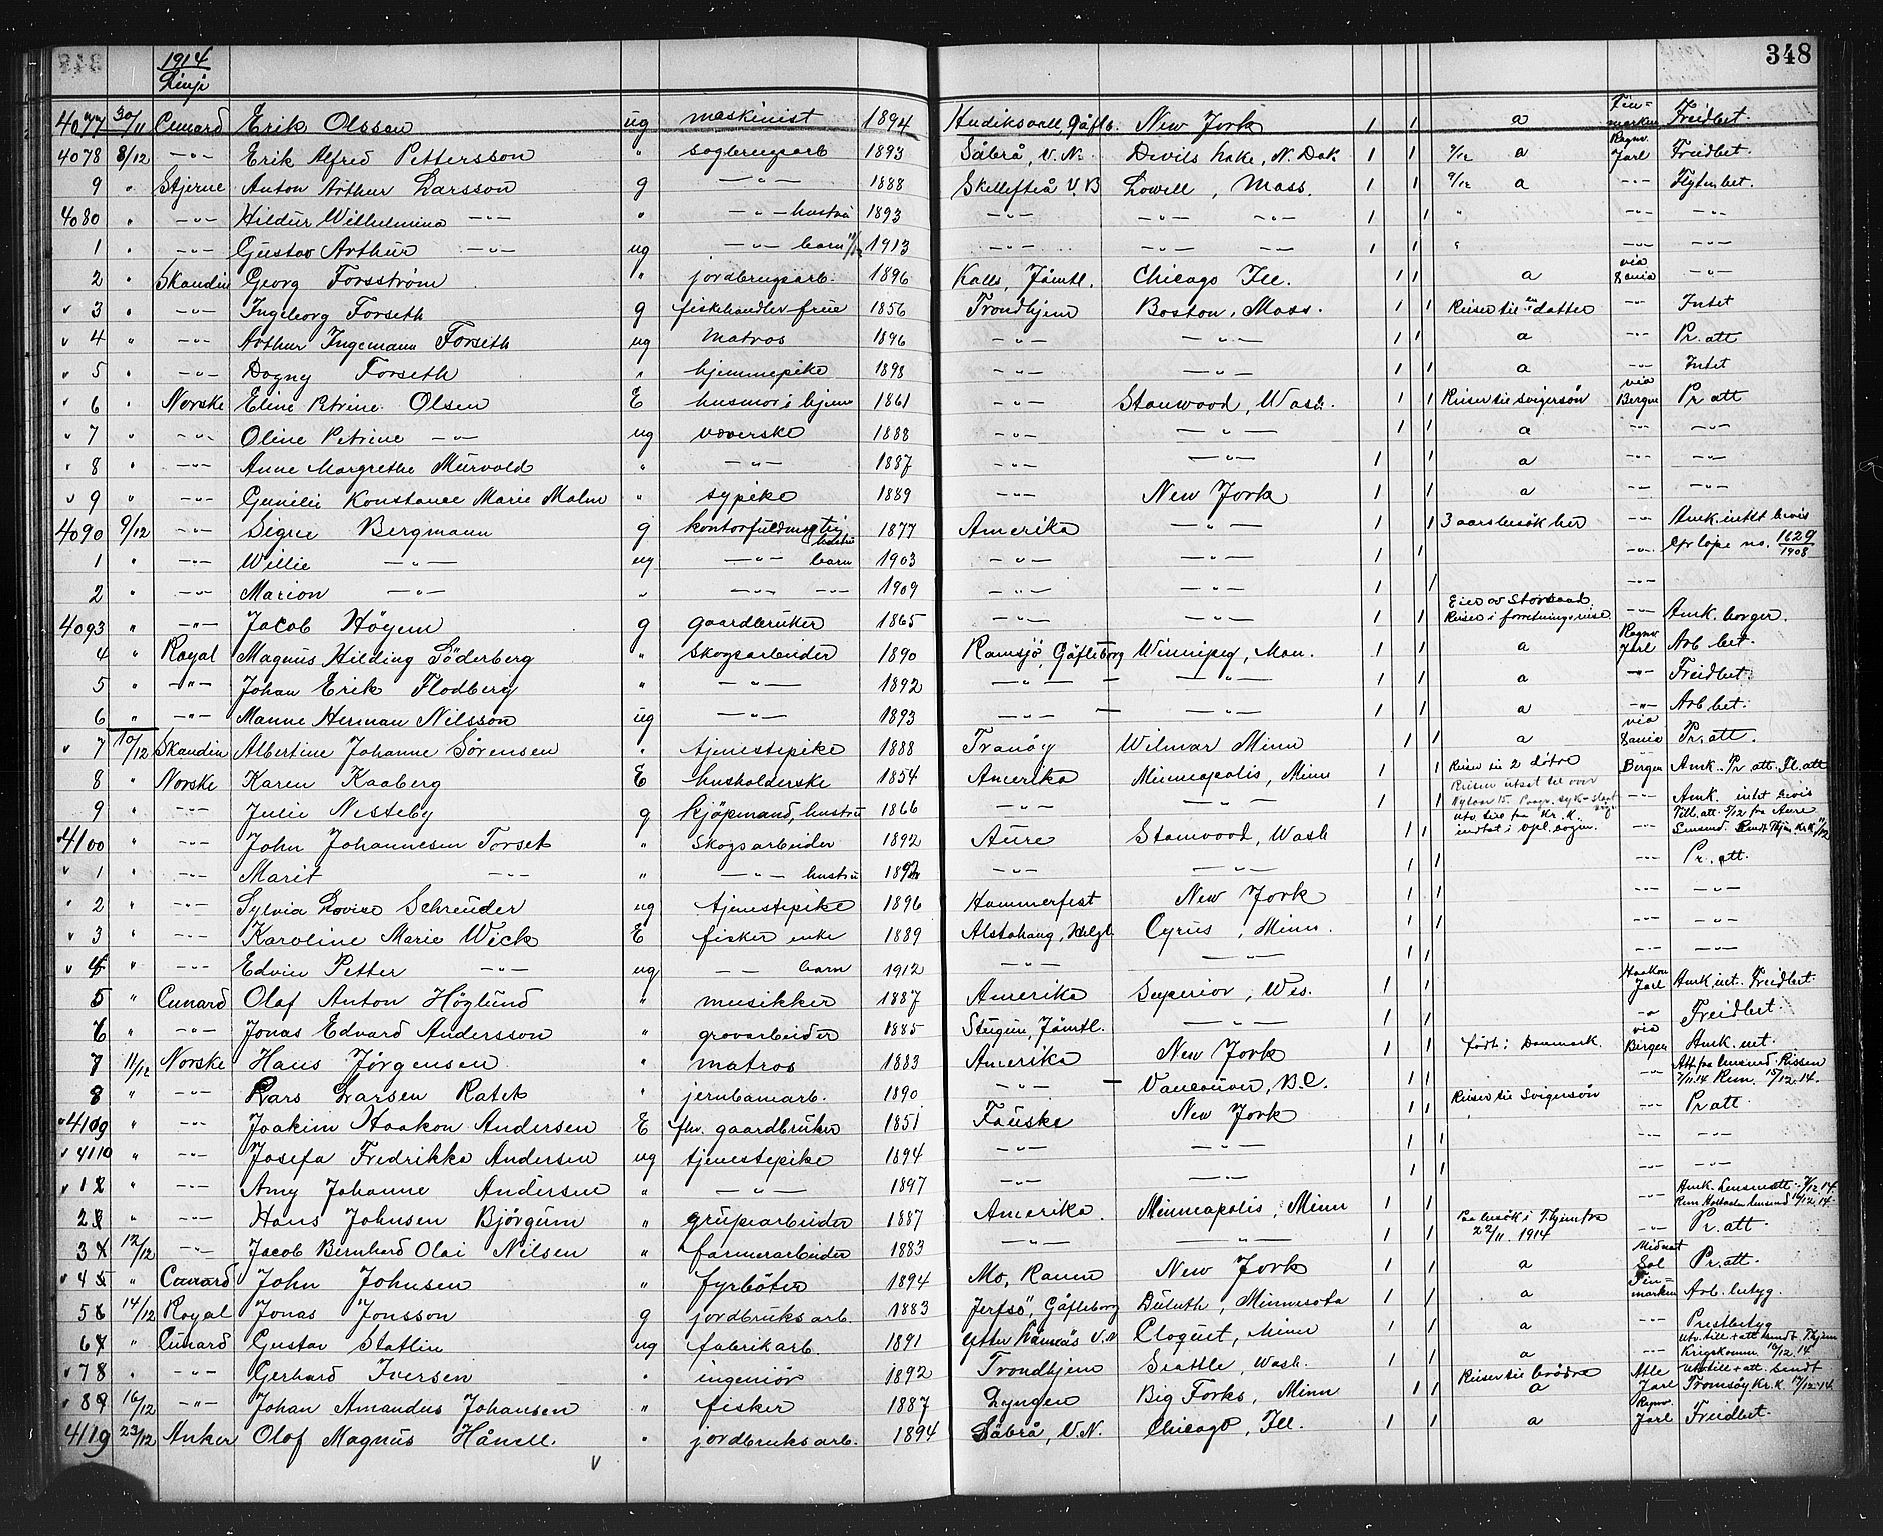 1914 348
Linje
4077 30/11 Cunard Erik Olsson ug maskinist 1894 Hudiksvall, Gåfleb. New York 1 1 a Finmarken Freidbet.
4078 8/12 -"- Erik Alfred Pettersson " sagbrugsarb 1893 Säbrå, V.N. Devils Lake, N. Dak 1 1 9/12 a Ragnv. Jarl Freidbet.
9 " Stjerne Anton Arthur Larsson g -"- 1888 Skellefteå V.B Lowell, Mass. 1 1 9/12 a -"- Flytn.bet.
4080 " -"- Hildur Wilhelmina -"- " -"- hustru 1893 -"- -"- -"- 1 1 " -"- -"-
1 " -"- Gustav Arthur -"- ug -"- barn 1913 -"- -"- -"- 1 1 " -"- -"-
2 " Skandin Georg Forsström " jordbrugsarb. 1896 Kalls, Jämtl. Chicago Ill. 1 1 a via Dania -"-
v 3 " -"- Ingeborg Forseth g fiskehandler frue 1856 Trondhjem Boston, Mass. 1 1 Reiser til en datter -"- Intet
v 4 " -"- Arthur Ingemann Forseth ug matros 1896 -"- -"- 1 1 a -"- Pr. att
v 5 " -"- Dagny Forseth " hjemmepike 1898 -"- -"- 1 1 a -"- Intet
v 6 " Norske Eline Petrine Olsen E husmor i hjem 1861 -"- Stanwood, Wash. 1 1 Reiser til svigersøn via Bergen Pr att
v 7 " -"- Oline Petrine -"- ug væverske 1888 -"- -"- 1 1 a -"- -"-
v 8 " -"- Anne Margrethe Murvold " -"- 1887 -"- -"- 1 1 a -"- -"-
v 9 " -"- Gunilie Konstance Marie Malm " sypike 1889 -"- New York 1 1 a -"- -"-
4090 9/12 -"- Signe Bergmann g kontorfuldmægtig hustru 1877 Amerika -"- 1 1 3 aars besök her -"- Amk. intet bevis
1 " -"- Willie -"- ug -"- barn 1903 -"- -"- 1 1 -"- Cfr løpe no. 1629/1908
2 -"- Marion -"- " -"- -"- 1909 -"- -"- 1 1 -"-
4093 " -"- Jacob Höyem g gaardbruker 1865 -"- -"- 1 1 Reiser i forretningsreise -"- Amk. borger.
4 " Royal Magnus Hilding Söderberg " Skogsarbeider 1890 Ramsjö, Gåfleborg Winnipeg, Man. 1 1 a Ragnv. Jarl Arb bet.
5 " -"- Johan Erik Flodberg " -"- 1892 -"- -"- 1 1 a -"- Freidbet.
6 " -"- Manne Herman Nilsson ug -"- 1893 -"- -"- 1 1 a -"- Arb bet.
v 7 10/12 Skandin Albertine Johanne Sørensen " tjenestepike 1888 Tranöy Wilmar Minn 1 1 a via Dania Pr. att.
8 " Norske Karen Kaaberg E husholderske 1854 Amerika Minneapolis, Minn 1 1 Reiser til 2 døtre Bergen Amk. Pr. att. Fl. att
9 " -"- Julie Nesteby g kjöpmand, hustru 1866 -"- -"- 1 1 Reisen utsat til over Nytaar 15. -"- Amk. intet bevis
4100 " -"- John Johannesen Torset " Skogsarbeider 1892 Aure Stanwood, Wash 1 1 utv. till. fra Kr. K. -"- Till. att 5/12 fra Aure
v 1 " -"- Marit -"- " -"- hustru 1892 -"- -"- 1 1 -"- Pr. att.
" 2 " -"- Sylvia Lovise Schreuder ug tjenestepike 1896 Hammerfest New York 1 1 -"- -"-
v 3 " -"- Karoline Marie Wick E fisker enke 1889 Alstahaug, Helgl. Cyrus, Minn. 1 1 -"- -"-
v 4 " -"- Edvin Petter -"- ug -"- barn 1912 -"- -"- 1 1 -"- -"-
5 " Cunard Olaf Anton Höglund " musikker 1887 Amerika Superior, Wis. 1 1 Haakon Jarl Amk. int. Freidbet.
6 " -"- Jonas Edvard Andersson " grovarbeider 1885 Stugun, Jämtl. -"- 1 1 -"- Freidbet.
7 11/12 Norske Hans Jørgensen " matros 1883 Amerika New York 1 1 født i Danmark. via Bergen Amk. int.
8 " -"- Lars Larsen Ratet " jernbanearb. 1890 -"- Vancouver, B.C. 1 1 -"- Att. fra lensmd. Rissen 7/11.14 Rem. 15/12.14.
v 4109 " -"- Joakim Haakon Andersen E fhv. gaardbruker 1851 Fauske New York 1 1 Reiser til svigersøn -"- Pr att
v 4110 " -"- Josefa Fredrikke Andersen ug tjenestepike 1894 -"- -"- 1 1 -"- -"-
v 1 " -"- Amy Johanne Andersen " -"- 1897 -"- -"- 1 1 -"- -"-
2 " -"- Hans Johnsen Bjørgum " grubearbeider 1887 Amerika. Minneapolis, Minn 1 1 -"- Amk. Lensm att. 9/12.14.
3 12/12 -"- Jacob Bernhard Olai Nilsen " farmerarbeider 1883 -"- -"- 1 1 Paa besök i Thjem fra 22/11. 1914 -"- Pr. att
v 4 " Cunard John Johnsen " fyrböter 1894 Mo, Ranen New York 1 1 a Midnat Sol Pr. att.
5 14/12 Royal Jonas Jonsson g jordbruksarb. 1883 Jerfsö, Gåfleborg Duluth, Minnesota 1 1 a Finmarken Arb. betyg.
6 " Cunard Gustav Stattin ug fabrikarb. 1891 V.N Cloquet, Minn 1 1 a -"- Prestbetyg
v 7 " -"- Gerhard Iversen " ingeniör 1892 Trondhjem Seattle, Wash. 1 1 a -"- Utv. till + att. sendt Thjem Krigskomm. 16/12.14
v 8 16/12 -"- Johan Amandus Johansen " fisker 1887 Lyngen Big Forks, Minn 1 1 Reiser til brödre a Atle Jarl Utv. till + att. sendt Tromsøy Kr. K. 17/12.14.
4119 23/12 Anker Olof Magnus Hånell. " jordbruksarb. 1894 Säbrå, V.N. Chicago, Ill. 1 1 a Ragnv. Jarl Freidbet.
v